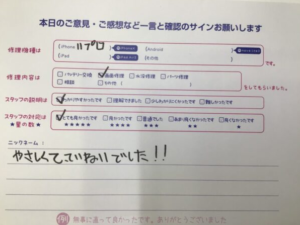 本日のご意見・ご感想など一言と確認のサインお願いします
修理機種は
iPhone 11プロ
Android
iPad
その他
です。
修理内容は
バッテリー交換 画面修理 水没修理 パーツ修理
相談 その他
をしてもらいました。
スタッフの説明は
わかりやすかったです 理解できました 少しわかりにくかったです 難しかったです
スタッフの対応は
★星の数★
とても良かったです 良かったです 普通でした あまり良くなかったです 良くなかったです
★★★★★ ★★★★ ★★★ ★★ ★
ニックネーム：
やさしくてていねいでした!!
無事に直って良かったです。ありがとうございました